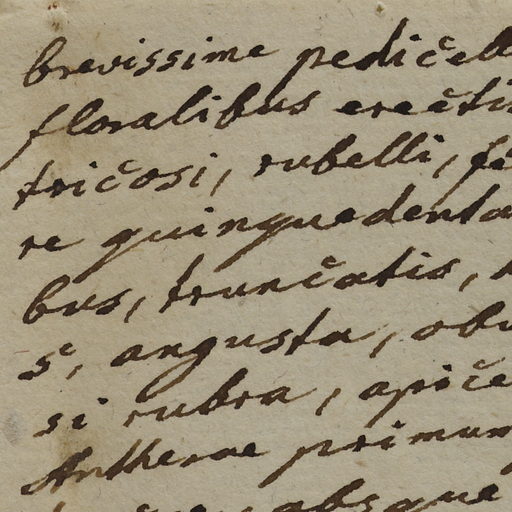 brevissime pedičell
floralibus erečtis
tričosi, rubelli, fe
re quinquedenta
bus, trunčatis,
s, angusta, obv
si rubra, apiče
Antherae primum
absque